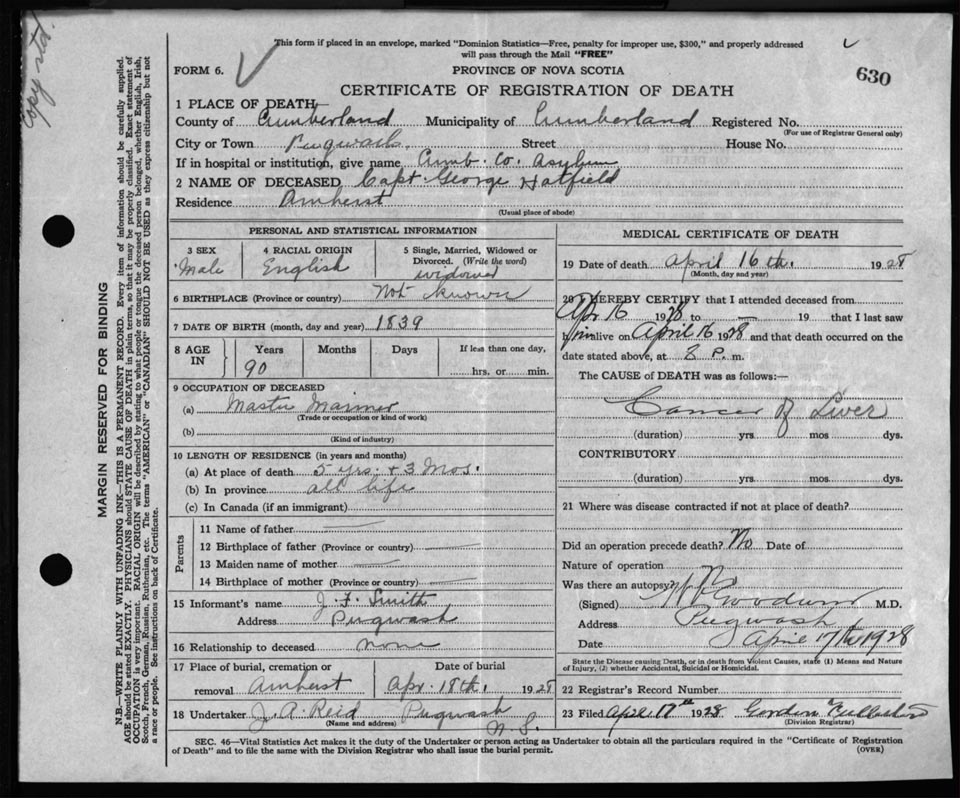 Copy std.
This form if placed in an envelope, marked "Dominion Statistics—Free, penalty for improper use, $300," and properly addressed
will pass through the Mail "FREE"
630
FORM 6.
PROVINCE OF NOVA SCOTIA
CERTIFICATE OF REGISTRATION OF DEATH
1 PLACE OF DEATH—
County of Cumberland Municipality of Cumberland Registered No.
(For use of Registrar General only)
City or Town Pugwash. Street House No.
If in hospital or institution, give name Cumb. Co. Asylum
2 NAME OF DECEASED Capt. George Hatfield
Residence Amherst
(Usual place of abode)
MARGIN RESERVED FOR BINDING
N.B.—WRITE PLAINLY WITH UNFADING INK—THIS IS A PERMANENT RECORD. Every item of information should be carefully supplied.
AGE should be stated EXACTLY. PHYSICIANS should STATE CAUSE OF DEATH in plain terms, so that it may be properly classified. Exact statement of
OCCUPATION is very important. RACIAL ORIGIN will be described by stating to what people or tongue the deceased person belonged, whether English, Irish,
Scotch, French, German, Russian, Ruthenian, etc. The terms "AMERICAN" or "CANADIAN" SHOULD NOT BE USED as they express citizenship but not
a race or people. See instructions on back of Certificate.
PERSONAL AND STATISTICAL INFORMATION
3 SEX
Male
4 RACIAL ORIGIN
English
5 Single, Married, Widowed or
Divorced. (Write the word)
widowed
6 BIRTHPLACE (Province or country) Not known
7 DATE OF BIRTH (month, day and year) 1839
8 AGE
IN
Years Months Days If less than one day,
90 hrs. or min.
9 OCCUPATION OF DECEASED
(a) Master Mariner
(Trade or occupation or kind of work)
(b)
(Kind of industry)
10 LENGTH OF RESIDENCE (in years and months)
(a) At place of death 5 yrs. + 3 Mos.
(b) In province all life
(c) In Canada (if an immigrant)
Parents
11 Name of father
12 Birthplace of father (Province or country)
13 Maiden name of mother
14 Birthplace of mother (Province or country)
15 Informant's name J. F. Smith
Address Pugwash
16 Relationship to deceased none
17 Place of burial, cremation or
removal Amherst
Date of burial
Apr. 18th. 1928
18 Undertaker J. A. Reid Pugwash
(Name and address) N. S.
MEDICAL CERTIFICATE OF DEATH
19 Date of death April 16th. 1928
(Month, day and year)
20 I HEREBY CERTIFY that I attended deceased from
Apr 16 1928 to — 19 that I last saw
him alive on April 16 1928 and that death occurred on the
date stated above, at 8 P. m.
The CAUSE of DEATH was as follows:—
Cancer of Liver
(duration) yrs. mos dys.
CONTRIBUTORY
(duration) yrs. mos. dys.
21 Where was disease contracted if not at place of death?
Did an operation precede death? No Date of
Nature of operation
Was there an autopsy? No
(Signed) Goodwin M.D.
Address Pugwash
Date April 17th 1928
State the Disease causing Death, or in death from Violent Causes, state (1) Means and Nature
of Injury, (2) whether Accidental, Suicidal or Homicidal.
22 Registrar's Record Number
23 Filed April 17th 1928 Gordon
(Division Registrar)
SEC. 46—Vital Statistics Act makes it the duty of the Undertaker or person acting as Undertaker to obtain all the particulars required in the "Certificate of Registration
of Death" and to file the same with the Division Registrar who shall issue the burial permit. (OVER)